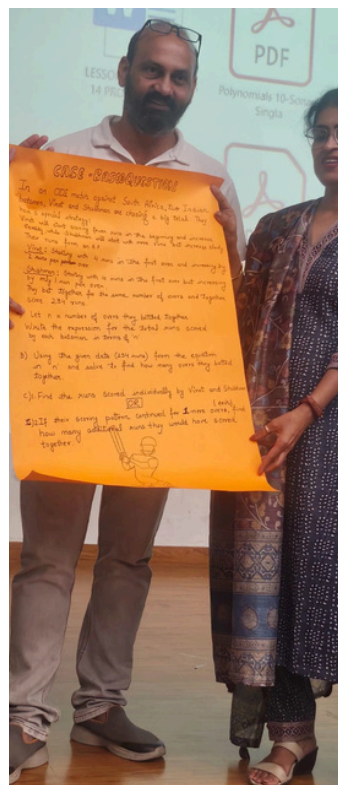 PDF
LESSON
14 PR
Polynomials 10-Sonia
Singla
CASE - BASED QUESTION
In an ODI match against South Africa, two Indian
batsmen, Virat and Shubman are chasing a big total. They
have a special strategy.
Virat will start scoring from runs in the beginning and increase
steadily while Shubman will start with more runs but increase slowly
Their runs form an A.P.
Virat: Starting with 4 runs in the first over and increasing by
2 runs per over
Shubman: Starting with 10 runs in the first over but increasing
by only 1 run per over.
They bat together for the same number of overs and together
score 234 runs.
Let n a number of overs they batted together
Write the expression for the total runs scored
by each batsman in terms of 'n'
B) Using the given data (234 runs) from the equation
in 'n' and solve to find how many overs they batted
together.
C)1. Find the runs scored individually by Virat and Shubman
OR
2. If their scoring pattern continued for 1 more overs, find
how many additional runs they would have scored
together.